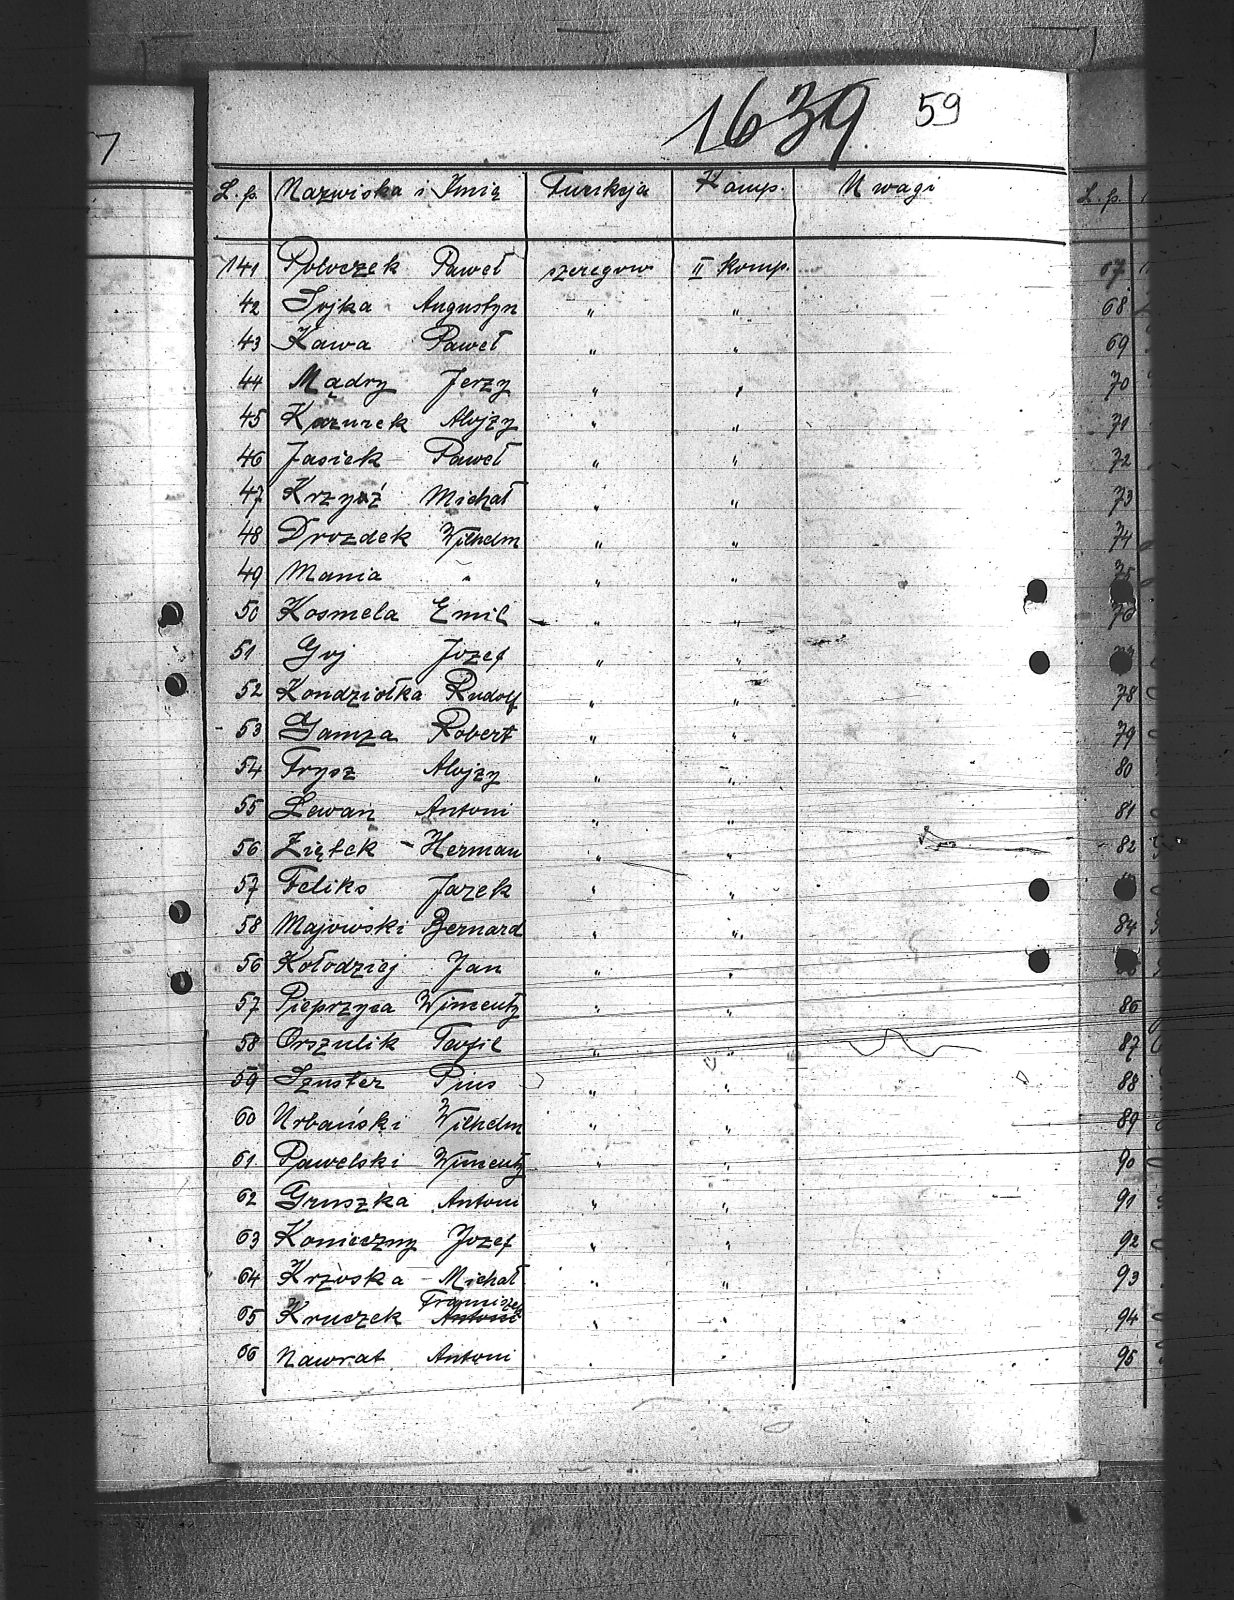 1639 59
L.p. Nazwiska i Imię Funkcja Komp. Uwagi
141 Poloczek Paweł szeregow II Komp.
42 Sojka Augustyn " "
43 Kawa Paweł " "
44 Mądry Jerzy " "
45 Kazurek Alojzy " "
46 Jasiek Paweł " "
47 Krzyż Michał " "
48 Drozdek Wilhelm " "
49 Mania " " "
50 Kosmela Emil " "
51 Goj Jozef " "
52 Kondziołka Rudolf " "
53 Gamza Robert " "
54 Frysz Alojzy " "
55 Lewan Antoni " "
56 Ziętek - Herman " "
57 Feliks Jarek " "
58 Majowski Bernard " "
56 Kołodziej Jan " "
57 Pieprzyca Wincenty " "
58 Orszulik Teofil " "
59 Szuster Pius " "
60 Urbański Wilhelm " "
61 Pawelski Wincenty " "
62 Gruszka Antoni " "
63 Konieczny Jozef " "
64 Krzoska - Michał " "
Franciszek
65 Kruczek Antoni " "
66 Nawrat Antoni " "
7
L.p.
67
68
69
70
71
72
73
74
75
76
78
79
80
81
82
84
86
87
88
89
90
91
92
93
94
95